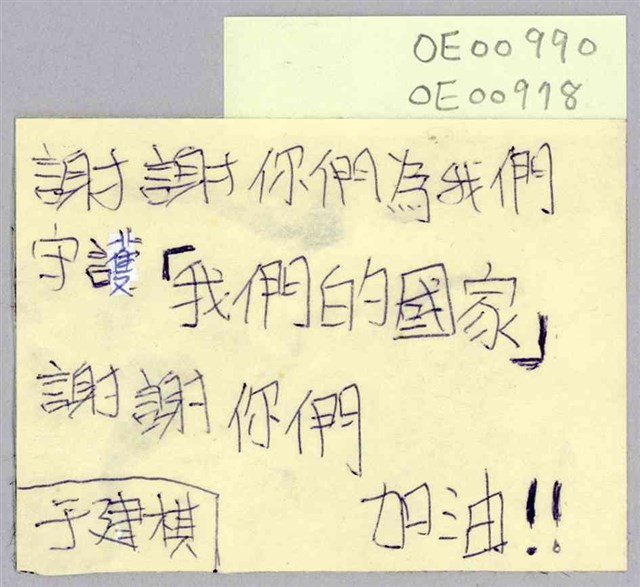 OE00990
OE00978
謝謝你們為我們
守護「我們的國家」
謝謝你們
加油!!
于建棋